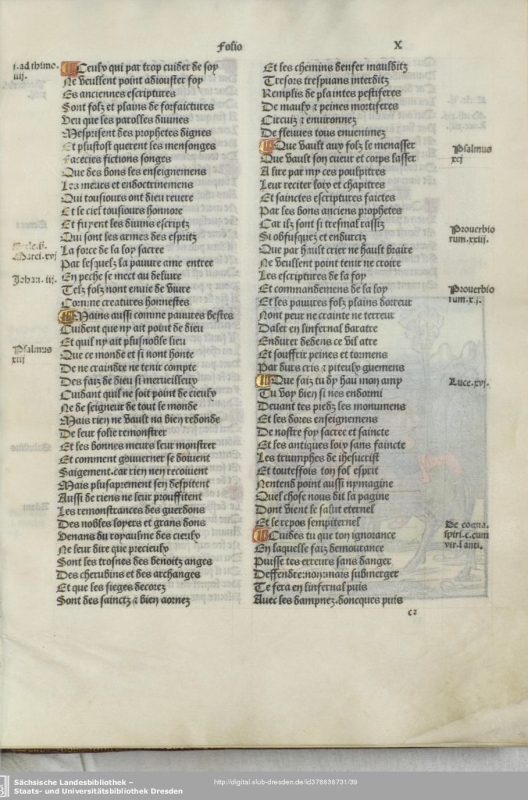 Folio
X
Ceulx qui par trop cuider de soy
Ne veullent point adiouster foy
Es anciennes escriptures
Sont folz et plains de forfaictures
Veu que les parolles diuines
Mesprisent des prophetes dignes
Et plustost querent les mensonges
Faceties fictions songes
Que des bons les enseignemens
Les meurs et endoctrinemens
Qui tousiours ont dieu reuere
Et le ciel tousiours honnore
Et fuyent les diuins escriptz
Qui sont les armes des espritz
La force de la foy sacre
Par lesquelz la pauure ame entree
En peche se mect au deliure
Telz folz nont enuie de viure
Comme creatures honnestes
Mains aussi comme pauures bestes
Cuident que ny ait point de dieu
Et quil ny ait plus noble lieu
Que ce monde et si nont honte
De ne craindre ne tenir compte
Des faiz de dieu si merueilleux
Cuidant quil ne soit point de cieulx
Ne de seigneur de tout le monde
Mais rien ne vault na bien redonde
De leur folie remonstrer
Et les bonnes meurs leur monstrer
Et comment gouuerner se doiuent
Saigement.car rien nen recoiuent
Mais plusaprement sen despitent
Aussi de riens ne leur prouffitent
Les remonstrances des guerdons
Des nobles loyers et grans dons
Venans du royaulme des cieulx
Ne leur dire que precieulx
Sont les trosnes des benoitz anges
Des cherubins et des archanges
Et que les sieges decorez
Sont des sainctz ⁊ bien aornez
i.ad thimo.
iiij.
Marci.xvj
Johan. iij.
Psalmus
xiij
Et les chemins denfer mauldltz
Tresors trespuans interditz
Remplis de plaintes pestiferes
De maulx ⁊ peines mortiferes
Circuiz ⁊ enuironnez
De fleuues tous enuenimez
Que vault aux folz le menasser
Que vault son cueur et corps lasser
A lire par my ces poulpitres
Leur reciter loix et chapitres
Et sainctes escriptures faictes
Par les bons anciens prophetes
Car ilz sont si tresmal rassiz
Si obfusquez et endurciz
Que par hault crier ne hault braire
Ne veullent point tenir ne croire
Les escriptures de la foy
Et commandemens de la loy
Et les pauures folz plains derreur
Nont peur ne crainte ne terreur
Daler en linfernal baratre
Endurer dedens ce vil atre
Et souffrir peines et tormens
Par durs cris ⁊ piteux guemens
Que faiz tu dy hau mon amy
Tu voy bien si nes endormi
Deuant tes piedz les monumens
Et les dorez enseignemens
De nostre foy sacree et saincte
Et les antiques loix sans faincte
Les triumphes de ihesucrist
Et touteffois ton fol esprit
Nentend point aussi nymagine
Quel chose nous dit la pagine
Dont vient le salut eternel
Et le repos sempiternel
Cuides tu que ton ignorance
En laquelle faiz demourance
Puisse tes erreurs sans danger
Deffendre:non:mais submerger
Te fera en linfernal puis
Auec les dampnez.doncques puis
Psalmus
xcj
Prouerbio
rum.xxiij.
Prouerbio
rum.xj.
Luce.xvj.
De consa.
cum
c2
Sächsische Landesbibliothek –
Staats- und Universitätsbibliothek Dresden
http://digital.slub-dresden.de/id378636731/39